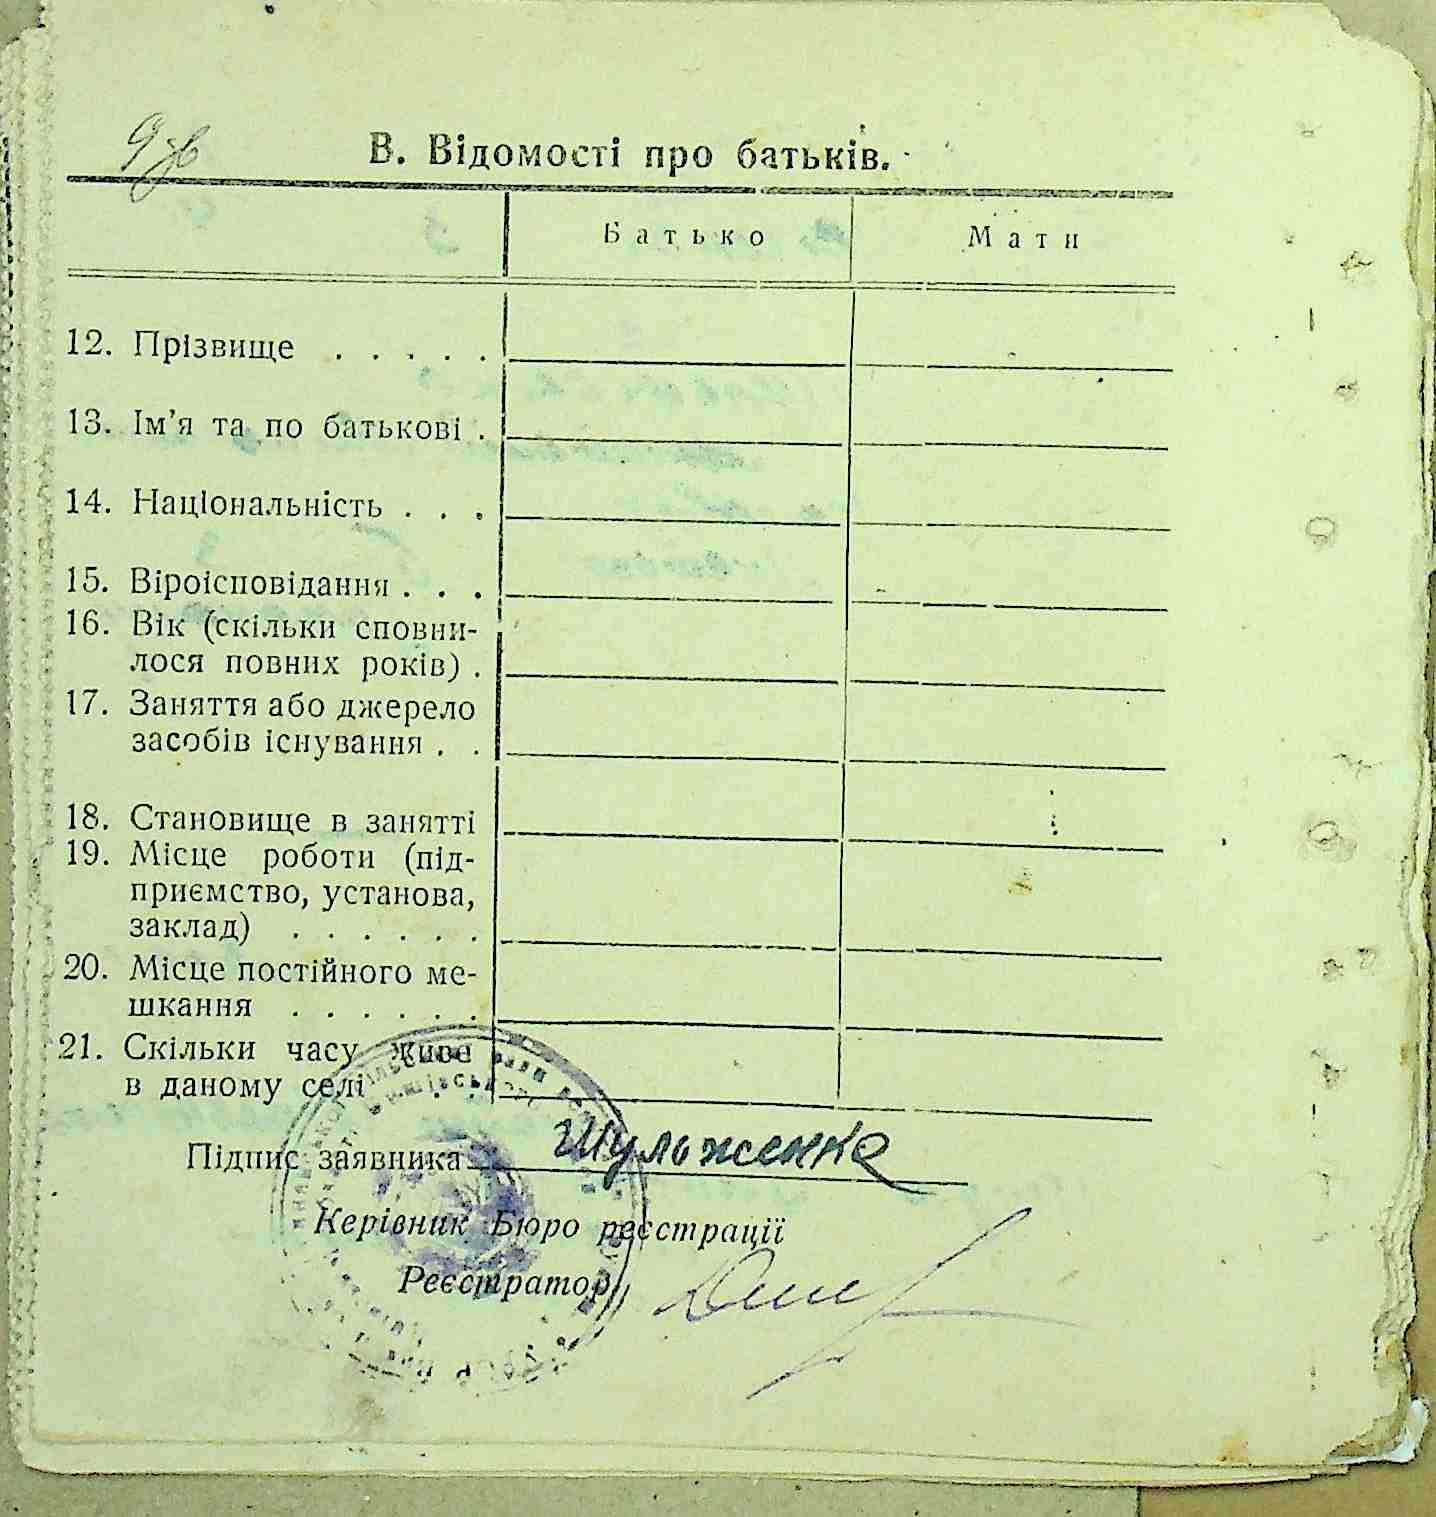 В. Відомості про батьків.
Батько Мати
12. Прізвище . . . . .
13. Ім’я та по батькові .
14. Національність . . .
15. Віроісповідання . . .
16. Вік (скільки сповни-
лося повних років) .
17. Заняття або джерело
засобів існування . .
18. Становище в занятті
19. Місце роботи (під-
приємство, установа,
заклад) . . . . . .
20. Місце постійного ме-
шкання . . . . . .
21. Скільки часу живе
в даному селі . .
Підпис заявника Шуложенко
Керівник Бюро реєстрації
Реєстратор